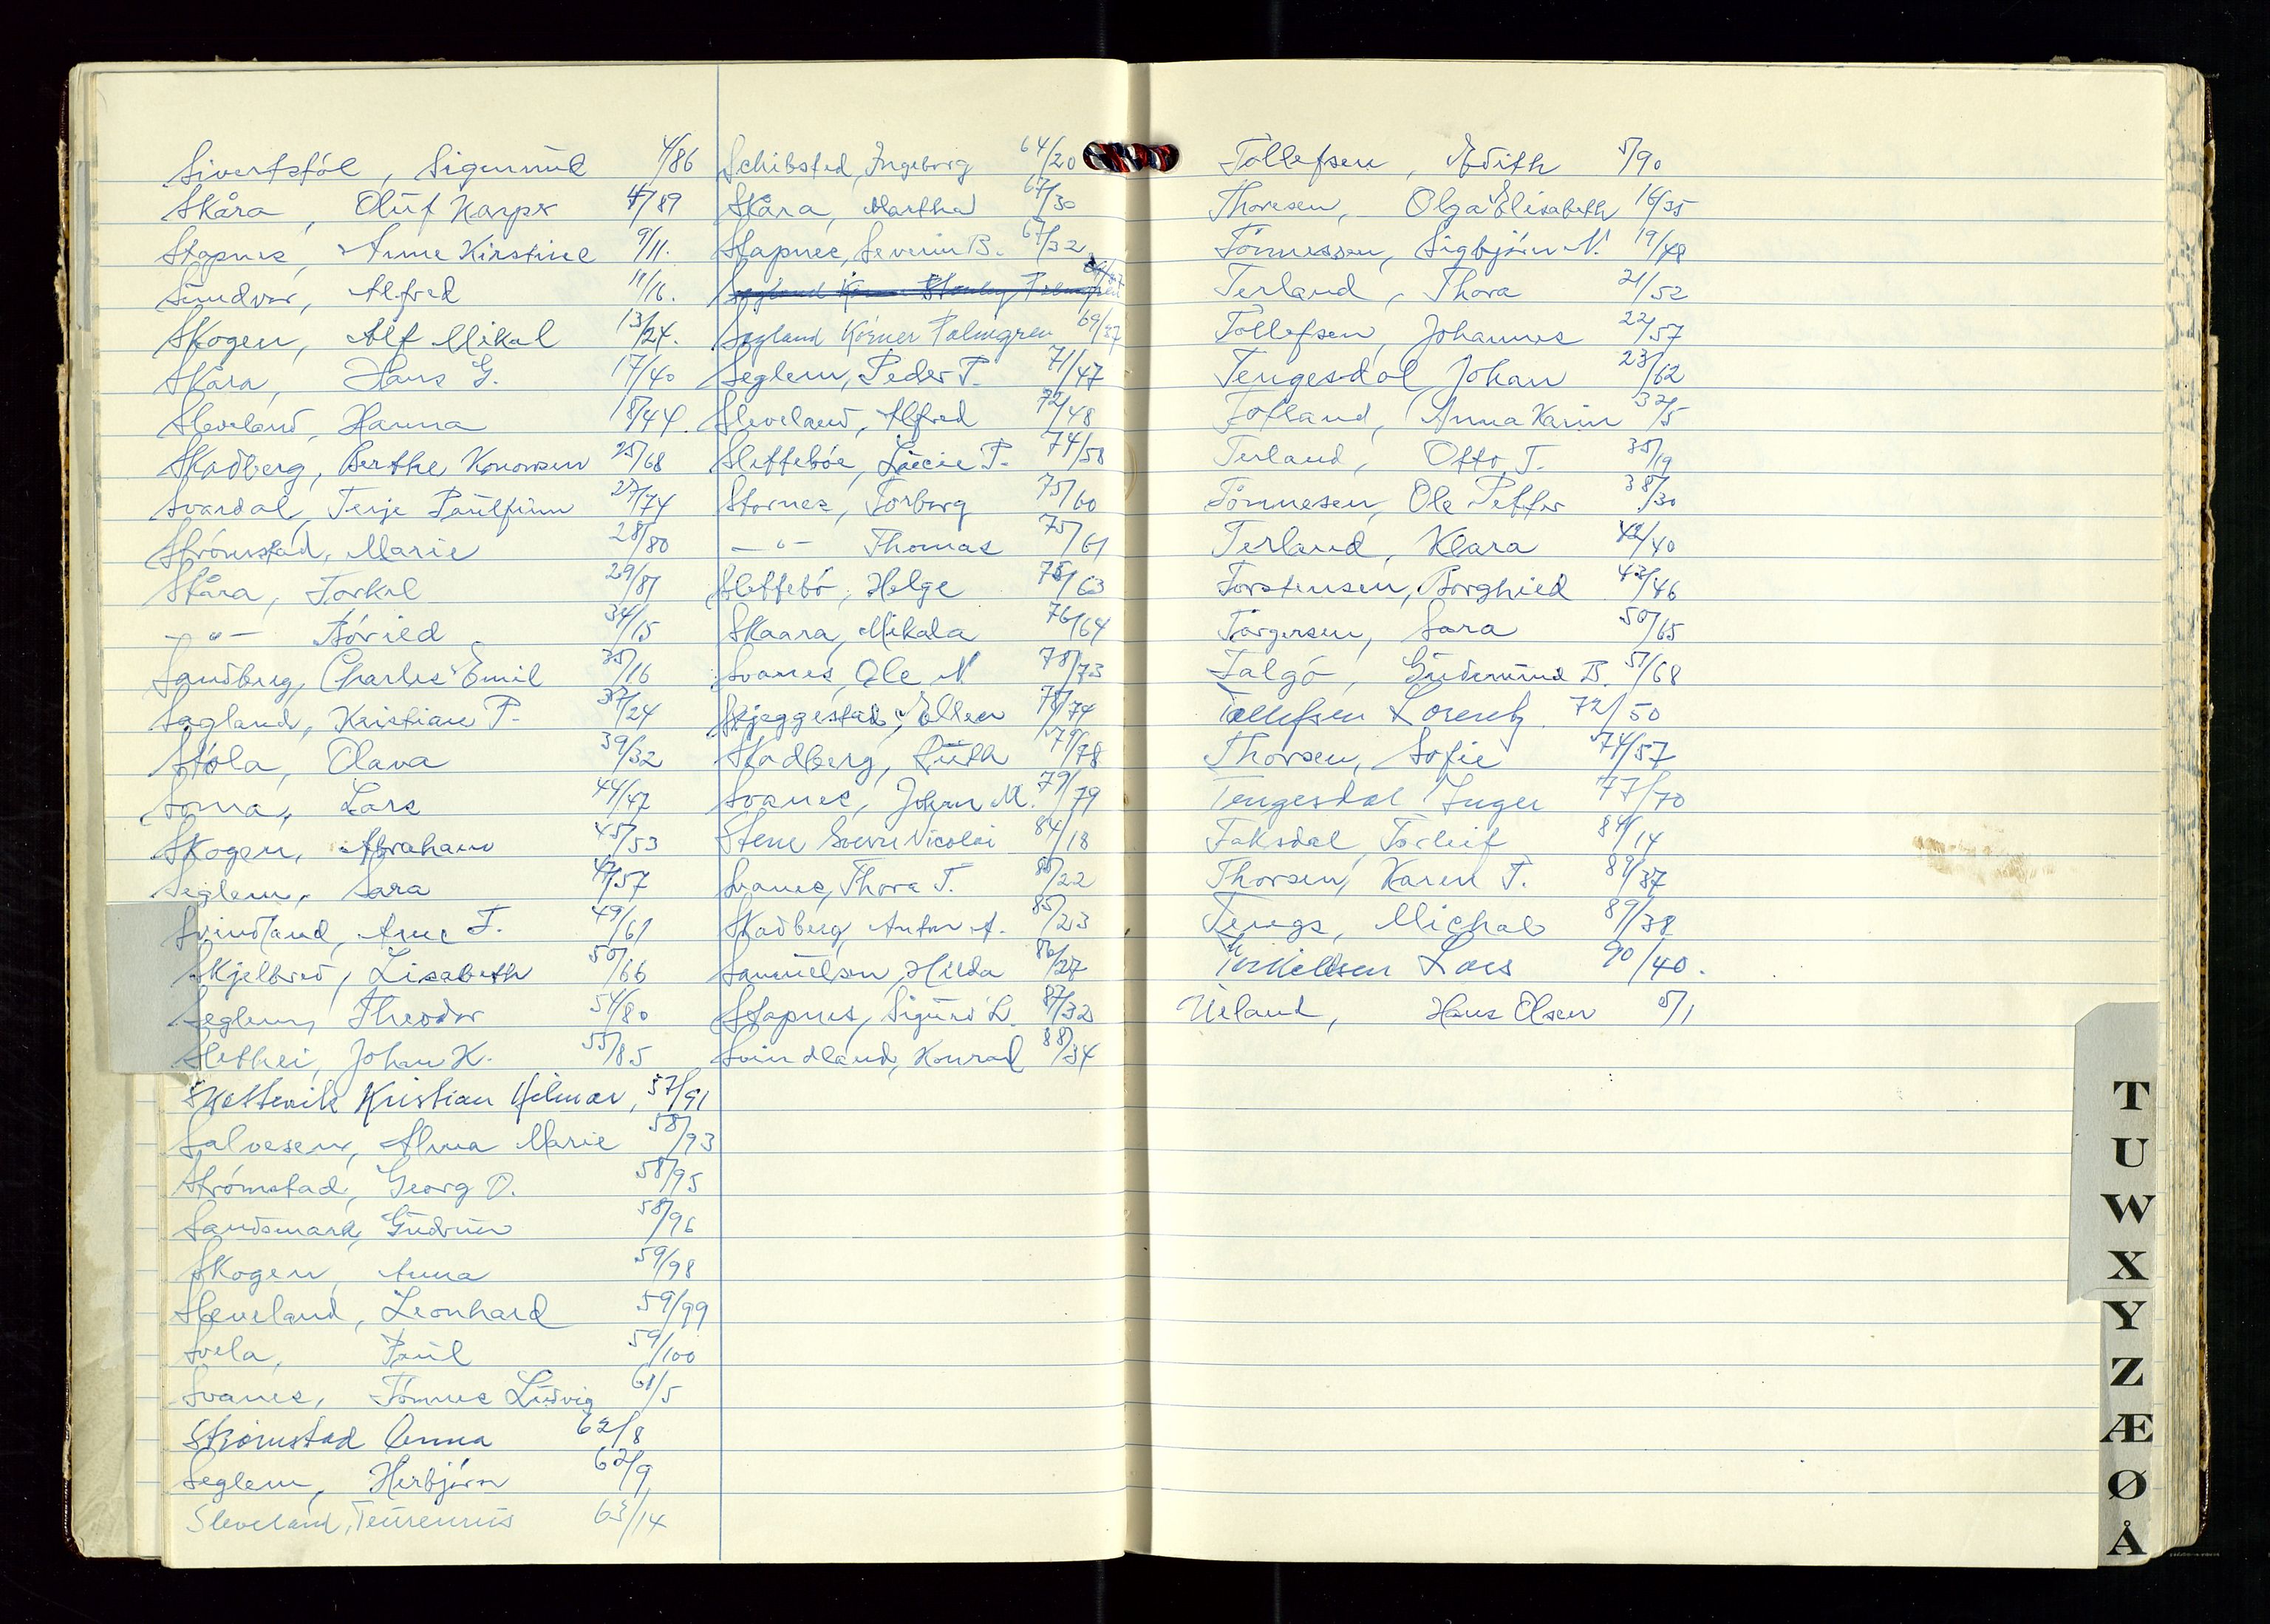 Sivertsføl, Sigurmud 4/86
Skåra, Oluf Kasper 4/89
Stapnes, Anne Kirstine 9/11.
Sundvor, Alfred 11/16.
Skogen, Alf Mikal 13/24.
Skåra, Hans G. 17/40
Sleveland, Hanna 18/44.
Skadberg, Berthe Konorsen 25/68
Svardal, Terje Paulfinn 27/74
Strømstad, Marie 28/80
Skåra, Torkel 29/81
— " — Børied 34/15
Sandberg, Charles Emil 35/16
Sagland, Kristian P. 37/24
Støla, Olava 39/32
Soma, Lars 44/47
Skogen, Abraham 45/53
Seglem, Sara 47/57
Svindland, Arne T. 49/61
Skjelbred, Lisabeth 50/66
Seglem, Theodor 54/80
Slethei, Johan K. 55/85
Skottevik Kristian Hilmar, 57/91
Salvesen, Alma Marie 58/93
Strømstad, Georg O. 58/95
Sandsmark, Gudrun 58/96
Skogen, Anna 59/98
Sleveland, Leonhard 59/99
Svela, Paul 59/100
Svanes, Tønnes Ludvig 61/5
Strømstad Anna 62/8
Seglem, Herbjørn 62/9
Sleveland, Teurennus 63/14
Schibsted, Ingeborg 64/20
Skåra, Martha 67/30
Stapnes, Severin B. 67/32
Sagland Körner Palmgren 69/37
Seglem, Peder P. 71/47
Sleveland, Alfred 72/48
Slettebøe, Lucie T. 74/58
Stornes, Torborg 75/60
— " — Thomas 75/61
Slettebø, Helge 75/63
Skaara, Mikala 76/64
Svanes, Ole N 78/73
Skjeggestad, Ellen 78/74
Skadberg, Ruth 79/78
Svanes, Johan M. 79/79
Stene Sverre Nicolai 84/18
Svanes, Thora T. 85/22
Skadberg, Anton A. 85/23
Samuelsen, Hilda 86/27
Stapnes, Sigurd L. 87/32
Svindland, Konrad 88/34
Tollefsen, Edith 5/90
Thoresen, Olga Elisabeth 16/35
Tønnessen, Sigbjørn N. 19/48
Terland, Thora 21/52
Tollefsen, Johannes 22/57
Tengesdal, Johan 23/62
Tofland, Anna Karin 32/5
Terland, Otto T. 35/19
Tønnesen, Ole Petter 38/30
Terland, Klara 42/40
Torstensen, Borghied 43/46
Torgersen, Sara 50/65
Talgø, Gudmund B. 51/68
Tollefsen Lorentz 72/50
Thorsen, Sofie 74/57
Tengesdal Inger 77/70
Taksdal, Torleif 84/14
Thorsen, Karen T. 89/37
Tengs, Michal 89/38
Torkelsen Lars 90/40.
Ueland, Hans Olsen 5/1
T
U
W
X
Y
Z
Æ
Ø
Å